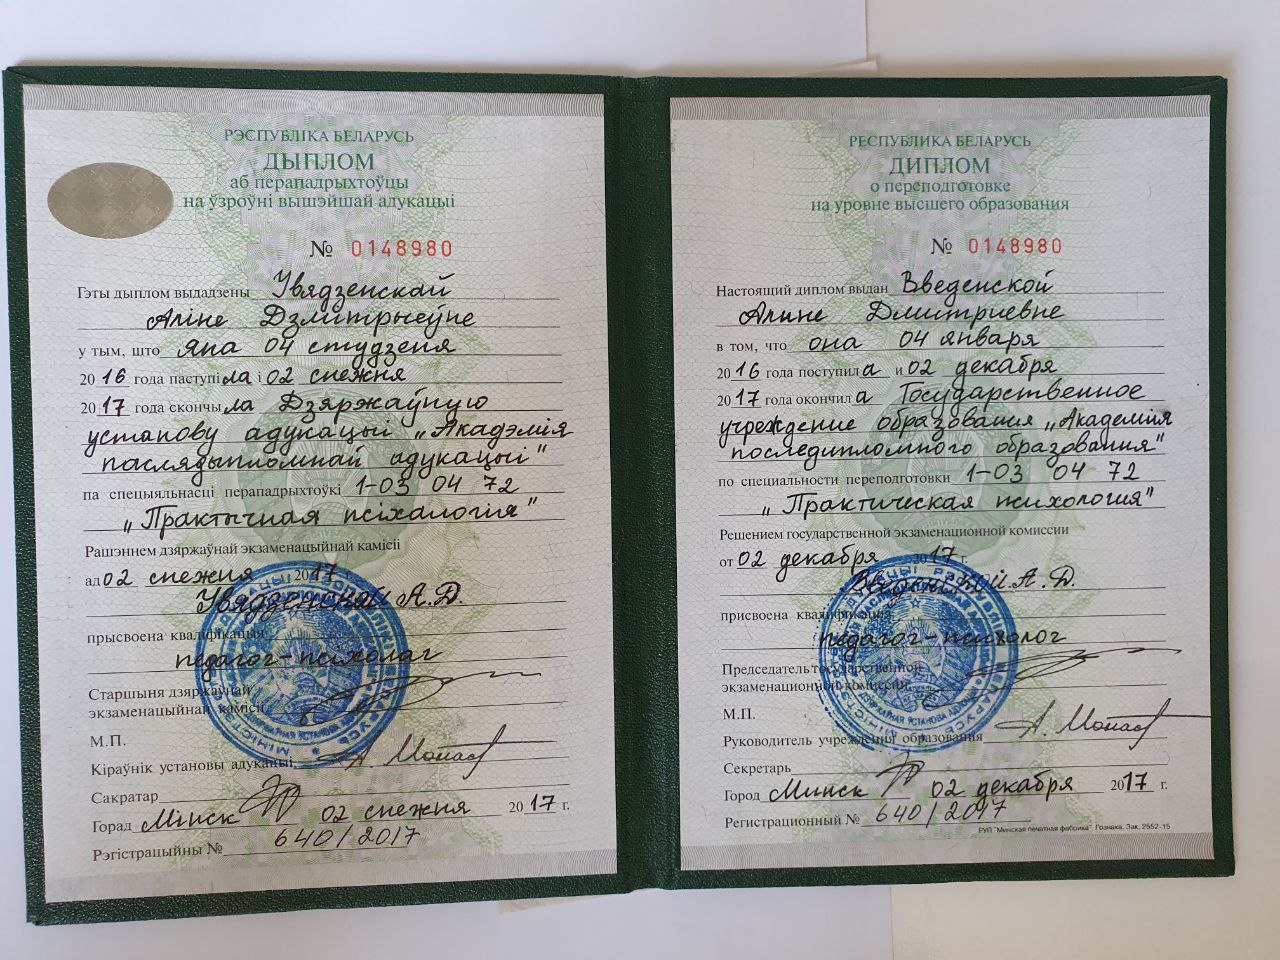 РЭСПУБЛІКА БЕЛАРУСЬ
ДЫПЛОМ
аб перападрыхтоўцы
на ўзроўні вышэйшай адукацыі
№ 0148980
Гэты дыплом выдадзены Увядзенскай
Аліне Дзмітрыеўне
у тым, што яна 04 студзеня
2016 года паступіла і 02 снежня
2017 года скончыла Дзяржаўную
установу адукацыі „Акадэмія
паслядыпломнай адукацыі"
па спецыяльнасці перападрыхтоўкі 1-03 04 72
„Практычная псіхалогія"
Рашэннем дзяржаўнай экзаменацыйнай камісіі
ад 02 снежня 2017
Увядзенскай А.Д.
прысвоена кваліфікацыя
педагог-псіхолаг
Старшыня дзяржаўнай
экзаменацыйнай камісіі
М.П.
Кіраўнік установы адукацыі
Сакратар
Горад Мінск 02 снежня 2017 г.
Рэгістрацыйны № 640/2017
РЕСПУБЛИКА БЕЛАРУСЬ
ДИПЛОМ
о переподготовке
на уровне высшего образования
№ 0148980
Настоящий диплом выдан Введенской
Алине Дмитриевне
в том, что она 04 января
2016 года поступила и 02 декабря
2017 года окончила Государственное
учреждение образования „Академия
последипломного образования"
по специальности переподготовки 1-03 04 72
„Практическая психология"
Решением государственной экзаменационной комиссии
от 02 декабря 2017 г.
Введенской А.Д.
присвоена квалификация
педагог-психолог
Председатель государственной
экзаменационной комиссии
М.П.
Руководитель учреждения образования
Секретарь
Город Минск 02 декабря 2017 г.
Регистрационный № 640/2017
РУП "Минская печатная фабрика" Гознака. Зак. 2552-15